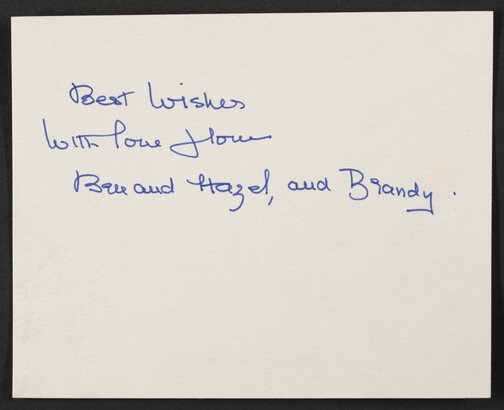 Best Wishes
With love from
Bru and Hazel, and Brandy.